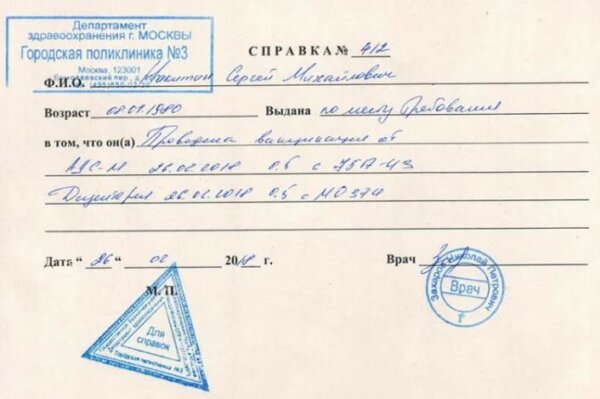 Департамент
здравоохранения г. МОСКВЫ
Городская поликлиника №3
Москва, 123001
СПРАВКА № 412
Ф.И.О. Никитин Сергей Михайлович
Возраст 08.01.1980 Выдана по месту Требования
в том, что он(а) Проведена вакцинация от
АДС-М 26.02.2018 0.5 с
Дифтерия 26.02.2018 0.5 с
Дата “ 26 “ 02 2018 г. Врач
М. П.
Захаров Николай Петрович
Врач
Для
справок
Городская поликлиника №3